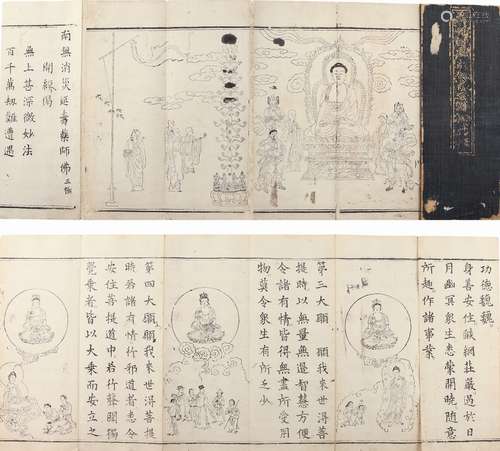 南無消災延壽藥師佛三稱
開經偈
無上甚深微妙法
百千萬劫難遭遇
功德巍巍
身善安住燄網莊嚴過於日
月幽冥衆生悉蒙開曉隨意
所趣作諸事業
第三大願 願我來世得菩
提時以無量無邊智慧方便
令諸有情皆得無盡所受用
物莫令衆生有所乏少
第四大願願我來世得菩提
時若諸有情行邪道者悉令
安住菩提道中若行聲聞獨
覺乘者皆以大乘而安立之